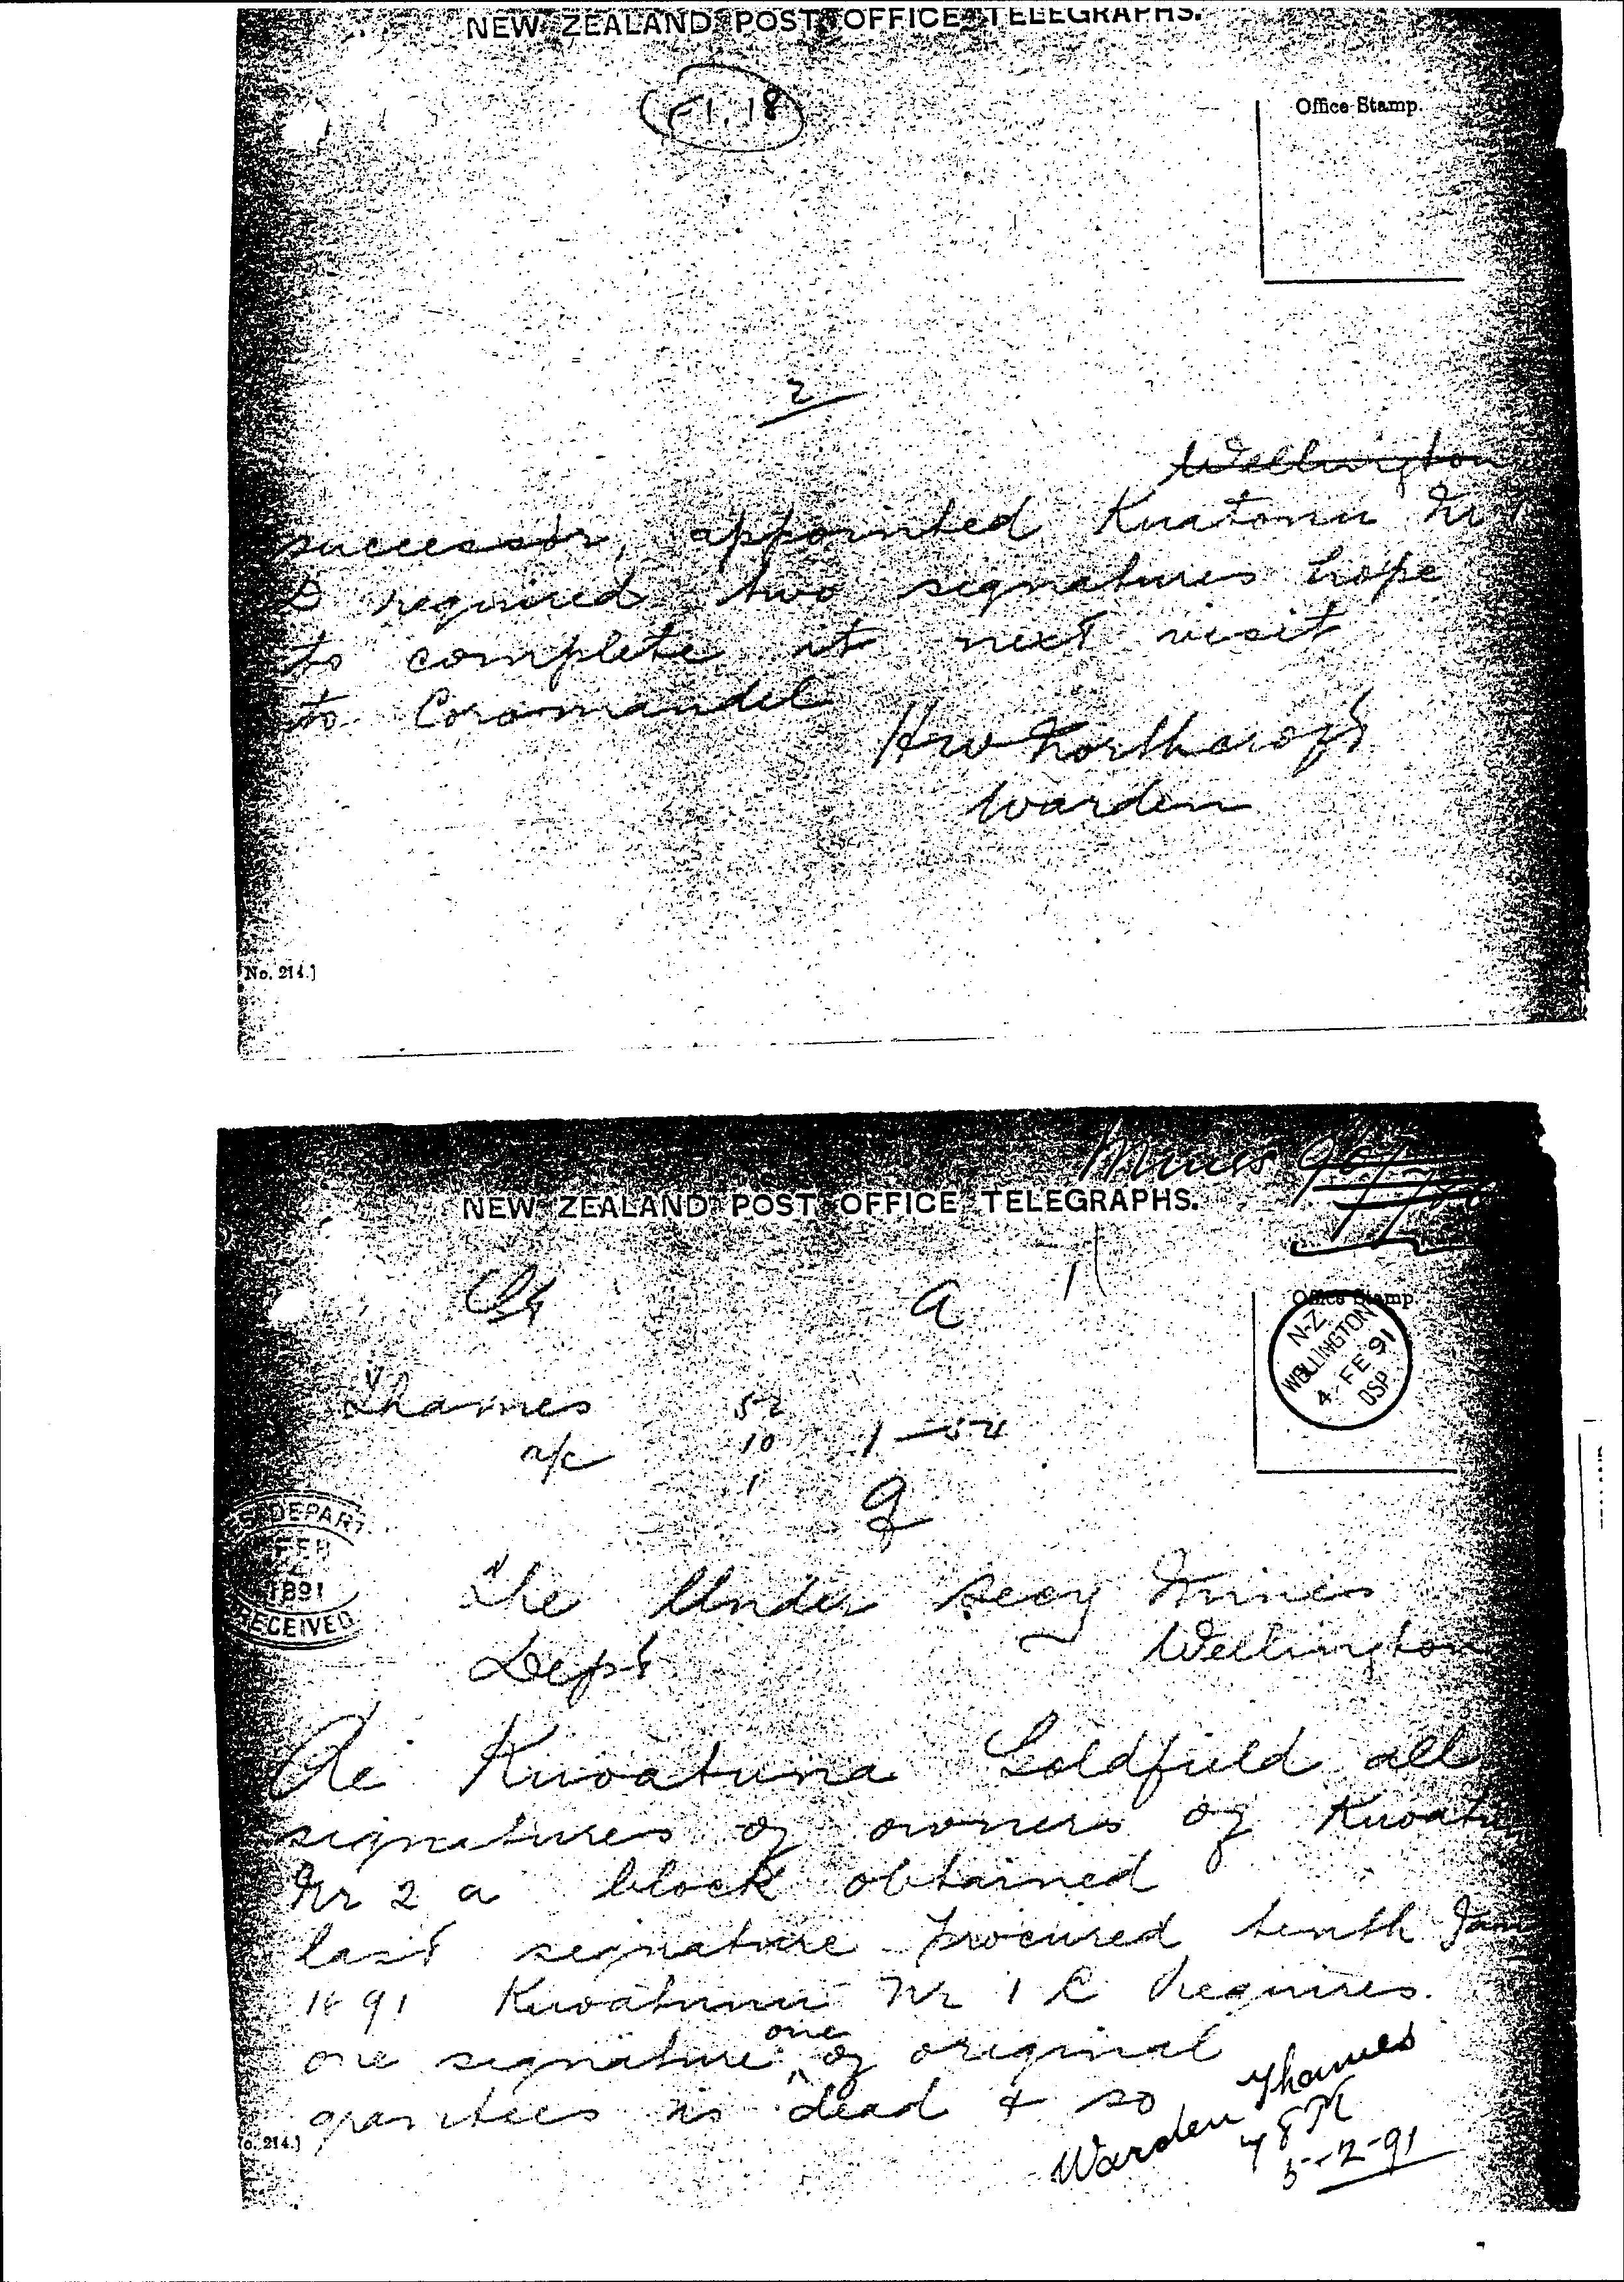 NEW ZEALAND POST OFFICE TELEGRAPHS.
F1.18
Office Stamp.
2
Wellington
successor, appointed Kuatonu Nr 1
D required two signatures hope
to complete it next visit
to Coromandel
HW Northcroft
Warden
No. 214.]
Mines
NEW ZEALAND POST OFFICE TELEGRAPHS.
a
Office Stamp.
N-Z
WELLINGTON
4 FE 91
OSP
Thames 52
a/c 10 1-54
1
ES DEPART.
FEB
1891
RECEIVED
The Under Secy Mines
Dept Wellington
Re Kuoatuna Goldfield all
signatures of owners of Kuoatu
Nr 2 a block obtained
last signature procured tenth Jan
1891 Kuoatunu Nr 1 C requires
one signature one of original
grantees is dead & so
Warden Thames
5-2-91
o. 214.]